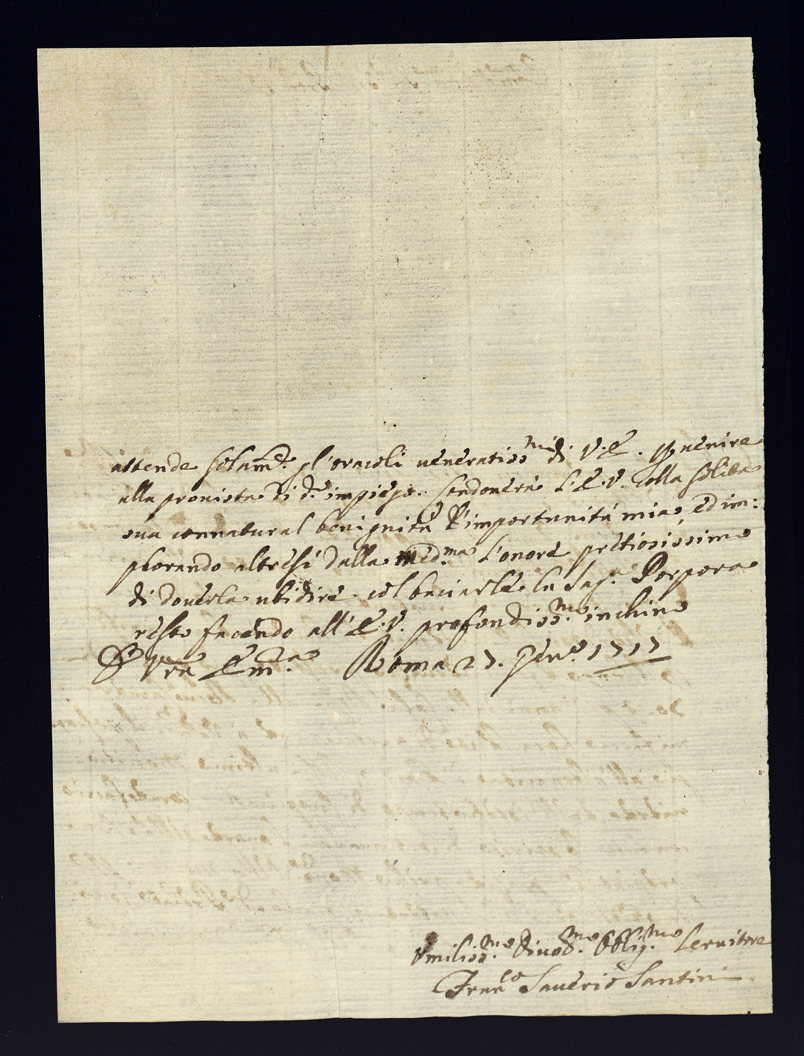 attende solam.te gl'oracoli veneratiss.mi di V.E. p venire
alla provista di d.o impiego. Condonerà l'E.V. colla solita
sua connatural benignità l'importunità mia, ed im:
plorando altresì dalla med.ma l'onore pretiosissimo
di doverla ubidire col baciarle la Sag.a Porpora
resto facendo all'E.V. profondiss.mo inchino
D V.ra Em.a Roma 27. Gen.o 1717
Umiliss.mo Divot.mo Oblig.mo Servitore
Fran.co Saverio Santini